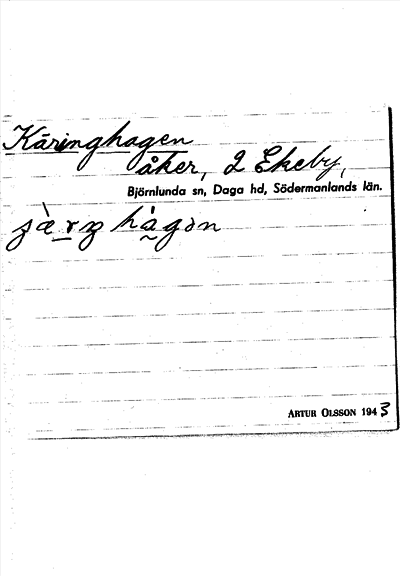 Käringhagen
åker, 2 Ekeby,
Björnlunda sn, Daga hd, Södermanlands län.
ARTUR OLSSON 1943